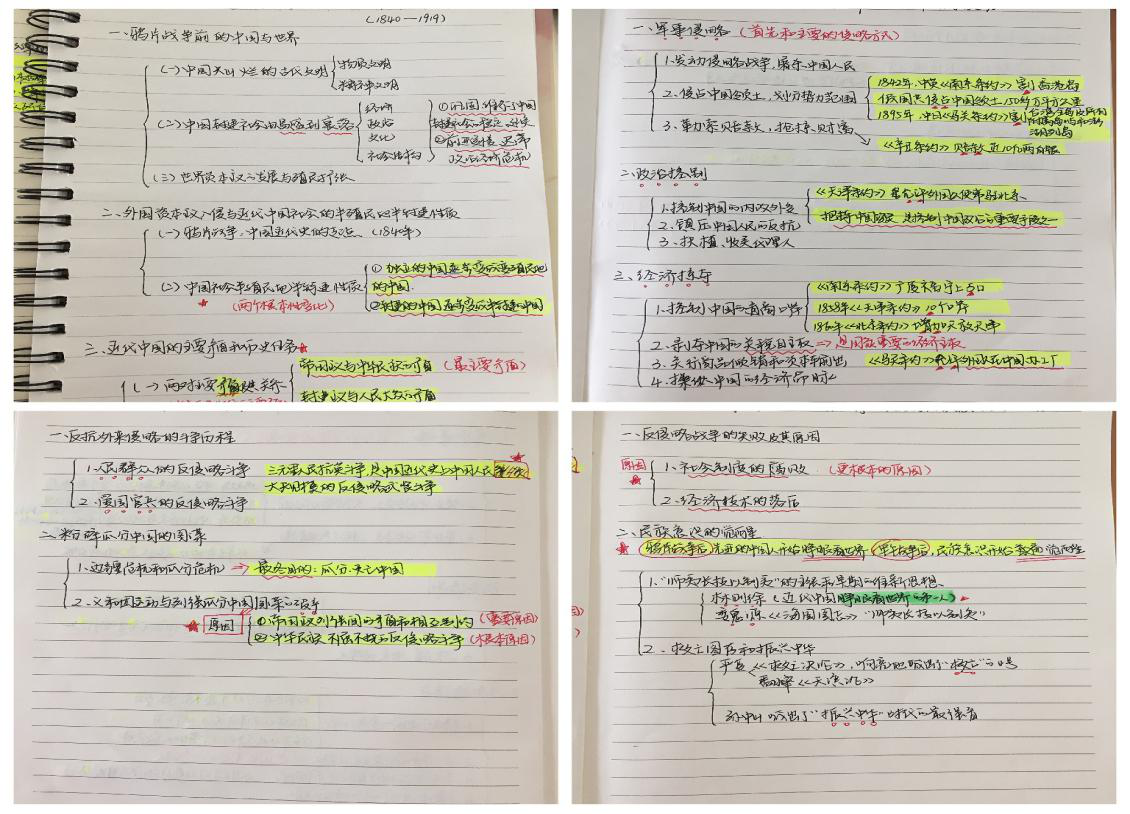 (1840—1919)
一、鸦片战争前的中国与世界
(一)中国灿烂的古代文明
物质文明
精神文明
(二)中国封建社会由昌盛到衰落
经济
政治
文化
社会结构
①巩固、维持了中国
封建社会的稳定、延续
②前进缓慢、迟滞
政治经济危机
(三)世界资本主义的发展与殖民扩张
二、外国资本主义入侵与近代中国社会的半殖民地半封建性质
(一)鸦片战争,中国近代史的起点、(1840年)
(二)中国社会半殖民地半封建性质
(两个根本性变化)
①独立的中国逐步变成半殖民地
的中国.
②封建的中国逐步变成半封建中国
三、近代中国的主要矛盾和历史任务
(一)两对主要矛盾及其关系
帝国主义与中华民族的矛盾 (最主要矛盾)
封建主义与人民大众的矛盾
一、军事侵略 (首先和主要的侵略方式)
1.发动侵略战争,屠杀中国人民
2.侵占中国领土,划分势力范围
3.勒索赔款,抢掠财富
1842年.中英《南京条约》割香港岛
俄国共侵占中国领土150多万平方公里
1895年.中日《马关条约》割
《辛丑条约》赔款近10亿两白银
二、政治控制
1.控制中国的内政外交
2.镇压中国人民的反抗
3.扶植、收买代理人
《天津条约》是允许外国公使常驻北京.
把持中国海关,是控制中国政治的重要手段之一
三、经济掠夺
1.控制中国的通商口岸
《南京条约》广厦福宁上5口
1858年《天津条约》10个口岸
《北京条约》增加天津
2.剥夺中国的关税自主权 ⇒
3.实行商品倾销和资本输出 《马关条约》允许外国在中国办工厂
4.操纵中国的经济命脉
一、反抗外来侵略的斗争历程
1.人民群众的反侵略斗争 三元里人民抗英斗争,是中国近代史上中国人民第一次
大规模的反侵略武装斗争
2.爱国官兵的反侵略斗争
二、粉碎瓜分中国的图谋
1.边疆危机和瓜分危机 ⇒ 最终目的:瓜分、灭亡中国
2.义和团运动与列强瓜分中国图谋的破产
原因
①帝国主义列强间的矛盾和相互制约 (重要原因)
②中华民族不屈不挠的反侵略斗争 (根本原因)
一、反侵略战争的失败及其原因
原因
1.社会制度的腐败 (更根本的原因)
2.经济技术的落后
二、民族意识的觉醒
鸦片战争后,先进的中国人开始睁眼看世界 甲午战争后,民族意识开始普遍觉醒
1.“师夷长技以制夷”的主张和早期的维新思想.
林则徐(近代中国睁眼看世界的第一人)
魏源《海国图志》“师夷长技以制夷”
2.救亡图存和振兴中华
严复《救亡决论》,响亮地喊出了“救亡”的口号
翻译《天演论》
孙中山喊出了“振兴中华”时代的最强音